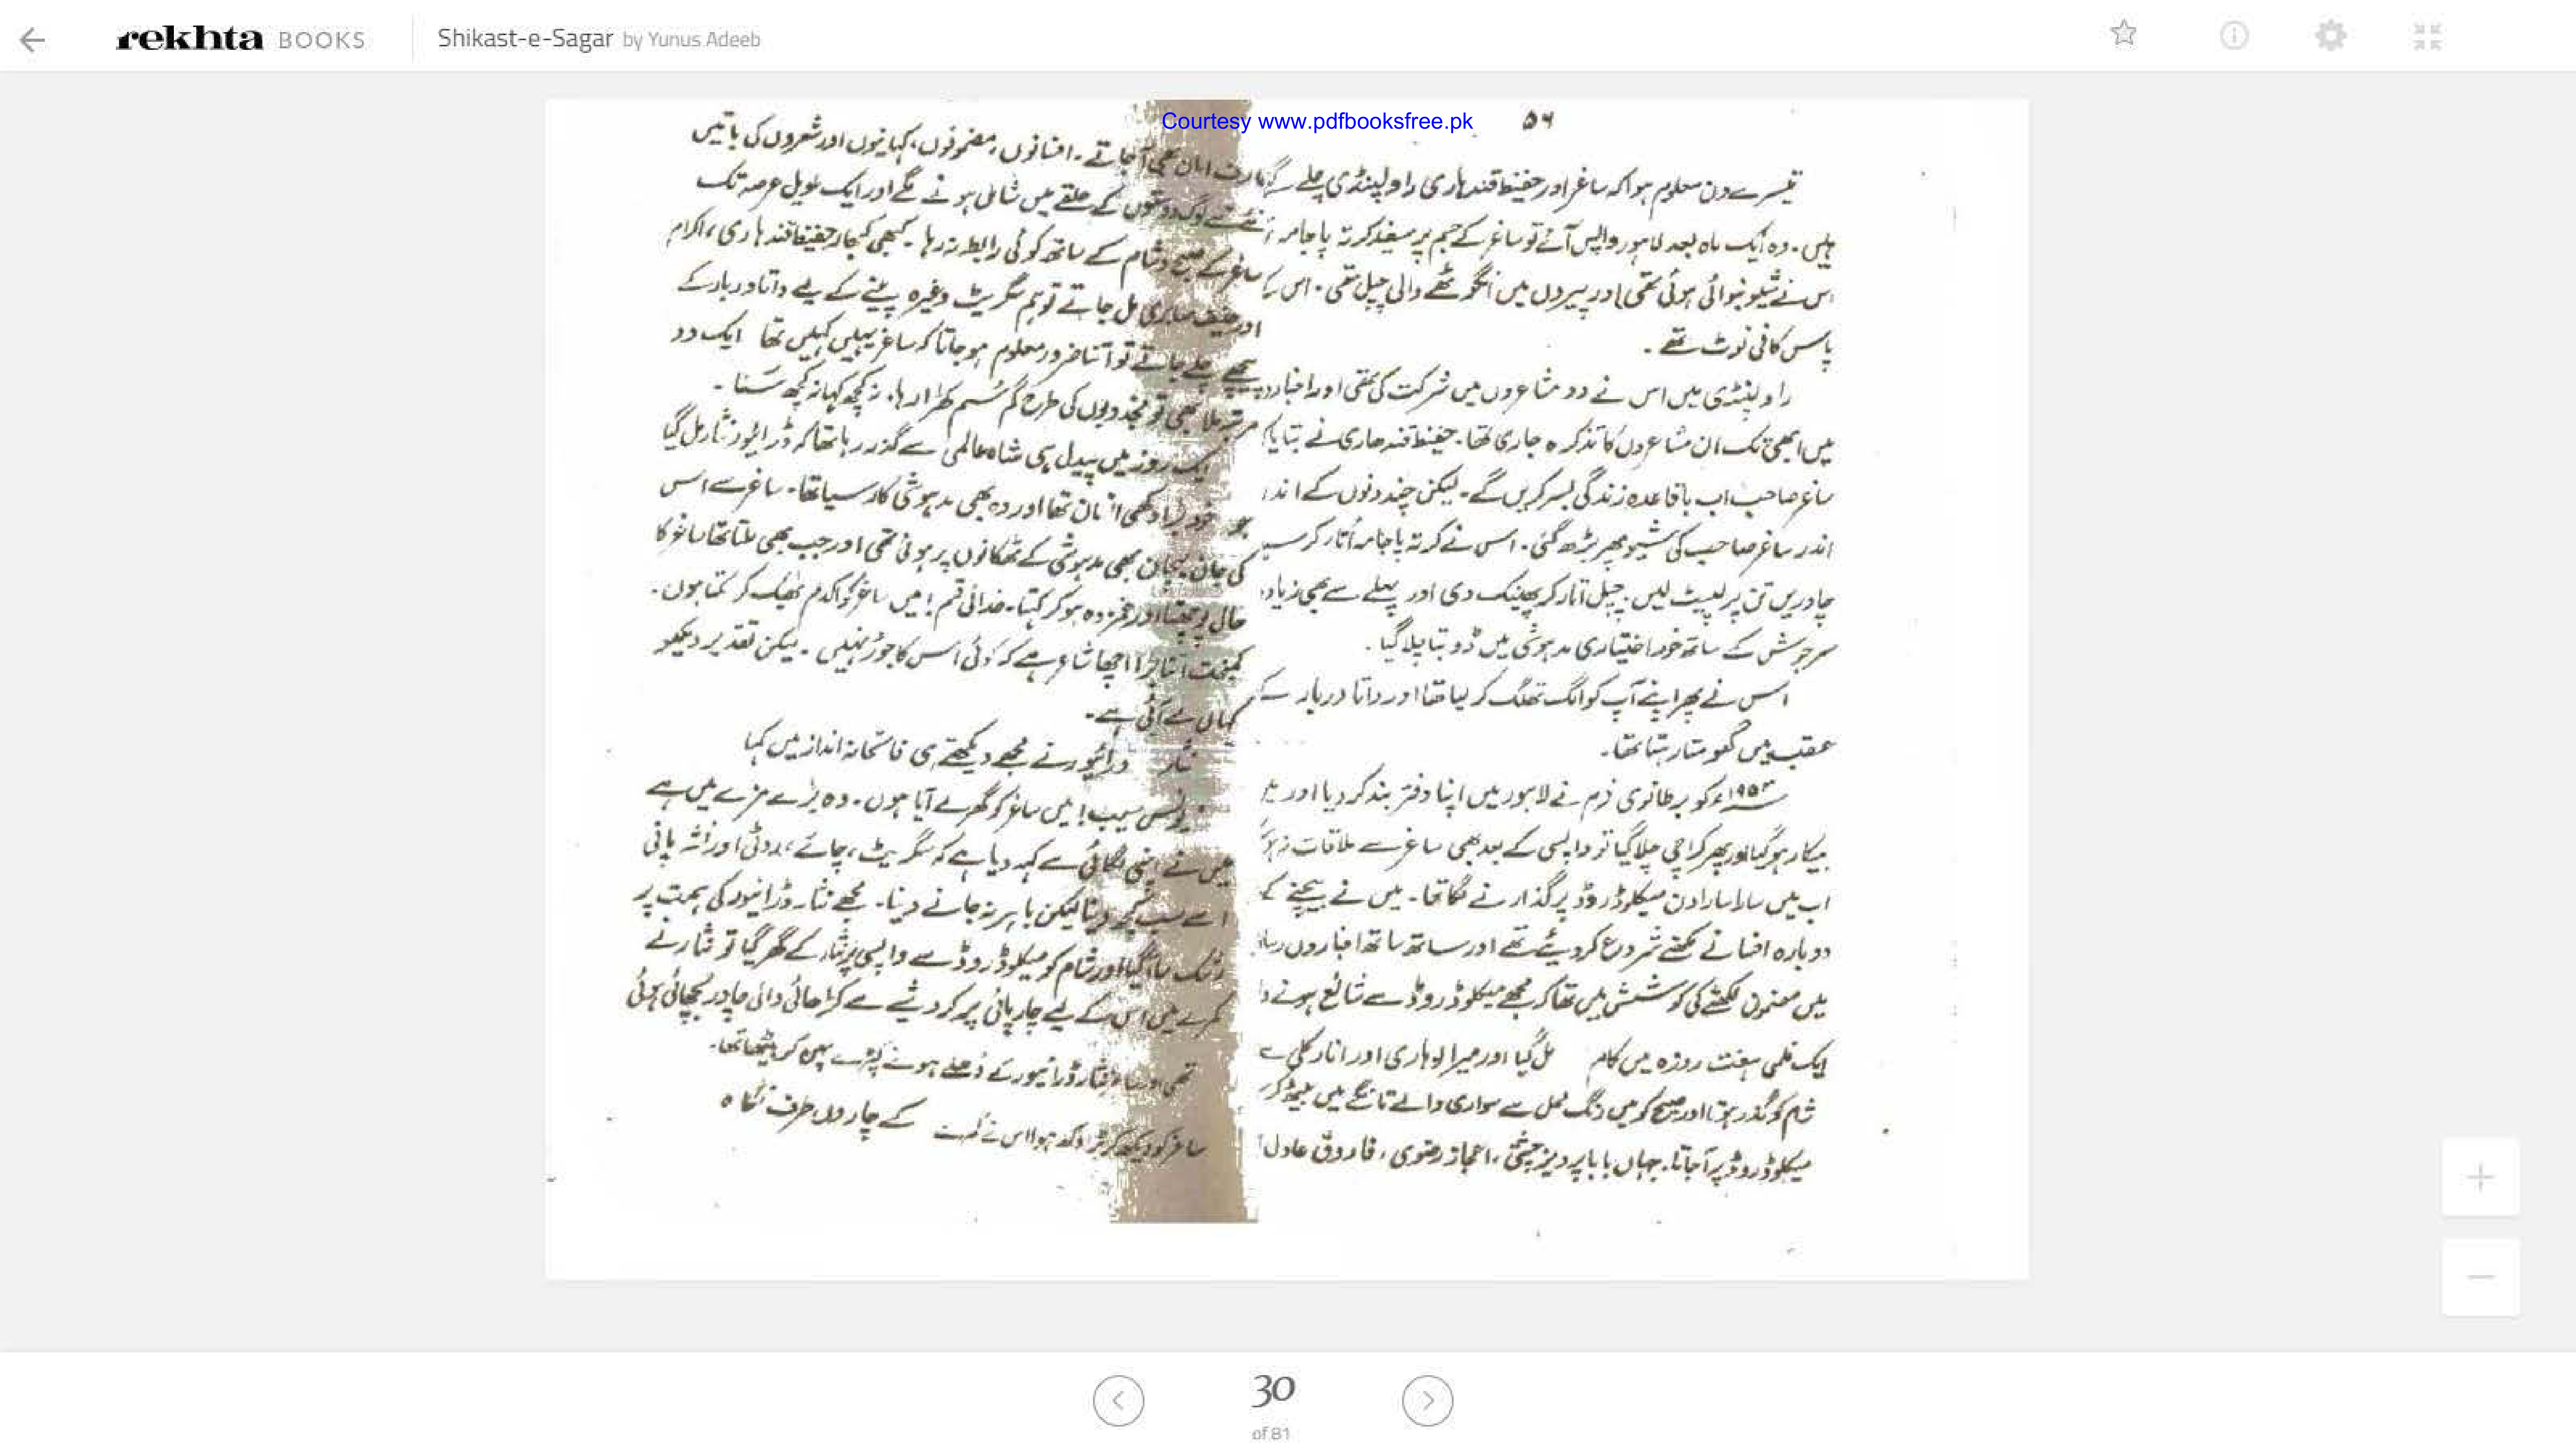 rekhta BOOKS
Shikast-e-Sagar by Yunus Adeeb
Courtesy www.pdfbooksfree.pk
۵۶
تیسرے دن معلوم ہوا کہ ساغر اور حفیظ قندہاری راولپنڈی چلے گئے
ہیں۔ وہ ایک ماہ بعد لاہور واپس آئے تو ساغر کے جسم پر سفید کرتہ پاجامہ
اس نے شیو بنوائی ہوئی تھی اور پیروں میں انگوٹھے والی چپل تھی۔ اس کے
پاس کافی نوٹ تھے۔
راولپنڈی میں اس نے دو مشاعروں میں شرکت کی تھی اور
میں ابھی تک ان مشاعروں کا تذکرہ جاری تھا۔ حفیظ قندھاری نے بتایا
ساغر صاحب اب باقاعدہ زندگی بسر کریں گے۔ لیکن چند دنوں کے اندر
اندر ساغر صاحب کی شیو پھر بڑھ گئی۔ اس نے کرتہ پاجامہ اُتار کر
چادریں تن پر لپیٹ لیں۔ چپل اتار کر پھینک دی اور پہلے سے بھی زیادہ
سرجوشی کے ساتھ خود اختیاری مدہوشی میں ڈوبتا چلا گیا۔
اس نے پھر اپنے آپ کو الگ تھلگ کر لیا تھا اور داتا دربار کے
عقب میں گھومتا رہتا تھا۔
کو برطانوی فرم نے لاہور میں اپنا دفتر بند کر دیا اور میں
بیکار ہو گیا اور پھر کراچی چلا گیا تو واپسی کے بعد بھی ساغر سے ملاقات نہ
اب میں سارا سارا دن میکلوڈ روڈ پر گذارنے لگا تھا۔ میں نے
دوبارہ افسانے لکھنے شروع کر دیئے تھے اور ساتھ ساتھ اخباروں
میں مضمون لکھنے کی کوشش میں تھا کہ مجھے میکلوڈ روڈ سے شائع ہونے
ایک فلمی ہفت روزہ میں کام مل گیا اور میرا لوہاری اور انار کلی سے
شام کو گذر ہوتا اور صبح کو میں رنگ محل سے سواری والے تانگے میں بیٹھ کر
میکلوڈ روڈ پر آ جاتا۔ جہاں بابا پرویز چشتی، اعجاز رضوی، فاروق عادل
عارف امان بھی آ جاتے۔ افسانوں، مضمونوں، کہانیوں اور شعروں کی باتیں
نئے نئے لوگ دوستوں کے حلقے میں شامل ہونے لگے اور ایک طویل عرصہ تک
ساغر کے صبح و شام کے ساتھ کوئی رابطہ نہ رہا۔ کبھی کبھار حفیظ قندہاری، اکرام
اور حنیف صابری مل جاتے تو ہم سگریٹ وغیرہ پینے کے لیے داتا دربار کے
پیچھے چلے جاتے تو اتنا ضرور معلوم ہو جاتا کہ ساغر یہیں کہیں تھا ایک دو
مرتبہ ملا بھی تو مجذوبوں کی طرح گم سُم کھڑا رہا۔ نہ کچھ کہا نہ کچھ سُنا۔
ایک روز میں پیدل ہی شاہ عالمی سے گذر رہا تھا کہ ڈرائیور نثار مل گیا
جو خود بڑا دکھی انسان تھا اور وہ بھی مدہوشی کا رسیا تھا۔ ساغر سے اس
کی جان پہچان بھی مدہوشی کے ٹھکانوں پر ہوئی تھی اور جب بھی ملتا تھا ساغر کا
حال پوچھتا اور غمزدہ ہو کر کہتا۔ خدائی قسم! میں ساغر کو اکدم ٹھیک کر سکتا ہوں۔
کمبخت اتنا بڑا اچھا شاعر ہے کہ کوئی اس کا جوڑ نہیں۔ لیکن تقدیر دیکھو
کہاں لے آئی ہے۔
نثار ڈرائیور نے مجھے دیکھتے ہی فاتحانہ انداز میں کہا
یونس میں ساغر کو گھر لے آیا ہوں۔ وہ بڑے مزے میں ہے
میں نے اپنی لگائی سے کہہ دیا ہے کہ سگریٹ، چائے، روٹی اور نشہ پانی
اسے سب کچھ دینا لیکن باہر نہ جانے دینا۔ مجھے نثار ڈرائیور کی ہمت پر
رشک سا آ گیا اور شام کو میکلوڈ روڈ سے واپسی پر نثار کے گھر گیا تو نثار نے
کمرے میں اس کے لیے چارپائی پر کروشیے سے کڑھائی والی چادر بچھائی ہوئی
تھی اور ساغر نثار ڈرائیور کے دُھلے ہوئے کپڑے پہن کر بیٹھا تھا۔
ساغر کو دیکھ کر بڑا دکھ ہوا اس نے کے چاروں طرف نگاہ
30
of 81